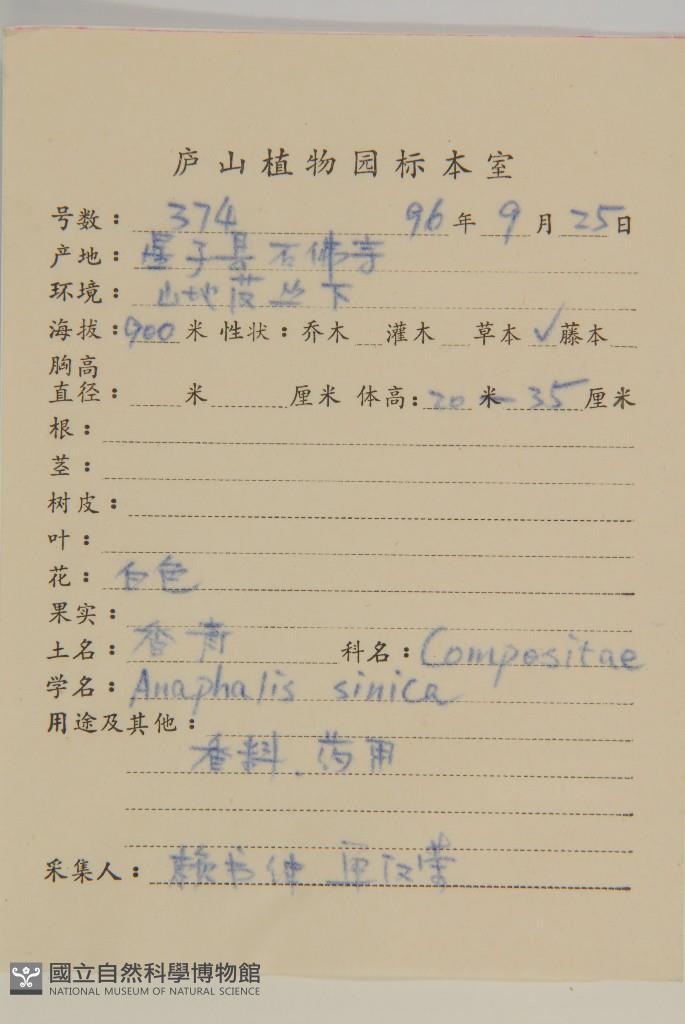 庐山植物园标本室
号数： 374 96年9月25日
产地： 星子县石佛寺
环境： 山地 丛下
海拔：900米 性状：乔木 灌木 草本√藤本
胸高
直径： 米 厘米 体高：20米-35厘米
根：
茎：
树皮：
叶：
花： 白色
果实：
土名： 香青 科名：Compositae
学名：Anaphalis sinica
用途及其他：
香料、药用
采集人： 赖书绅
國立自然科學博物館
NATIONAL MUSEUM OF NATURAL SCIENCE